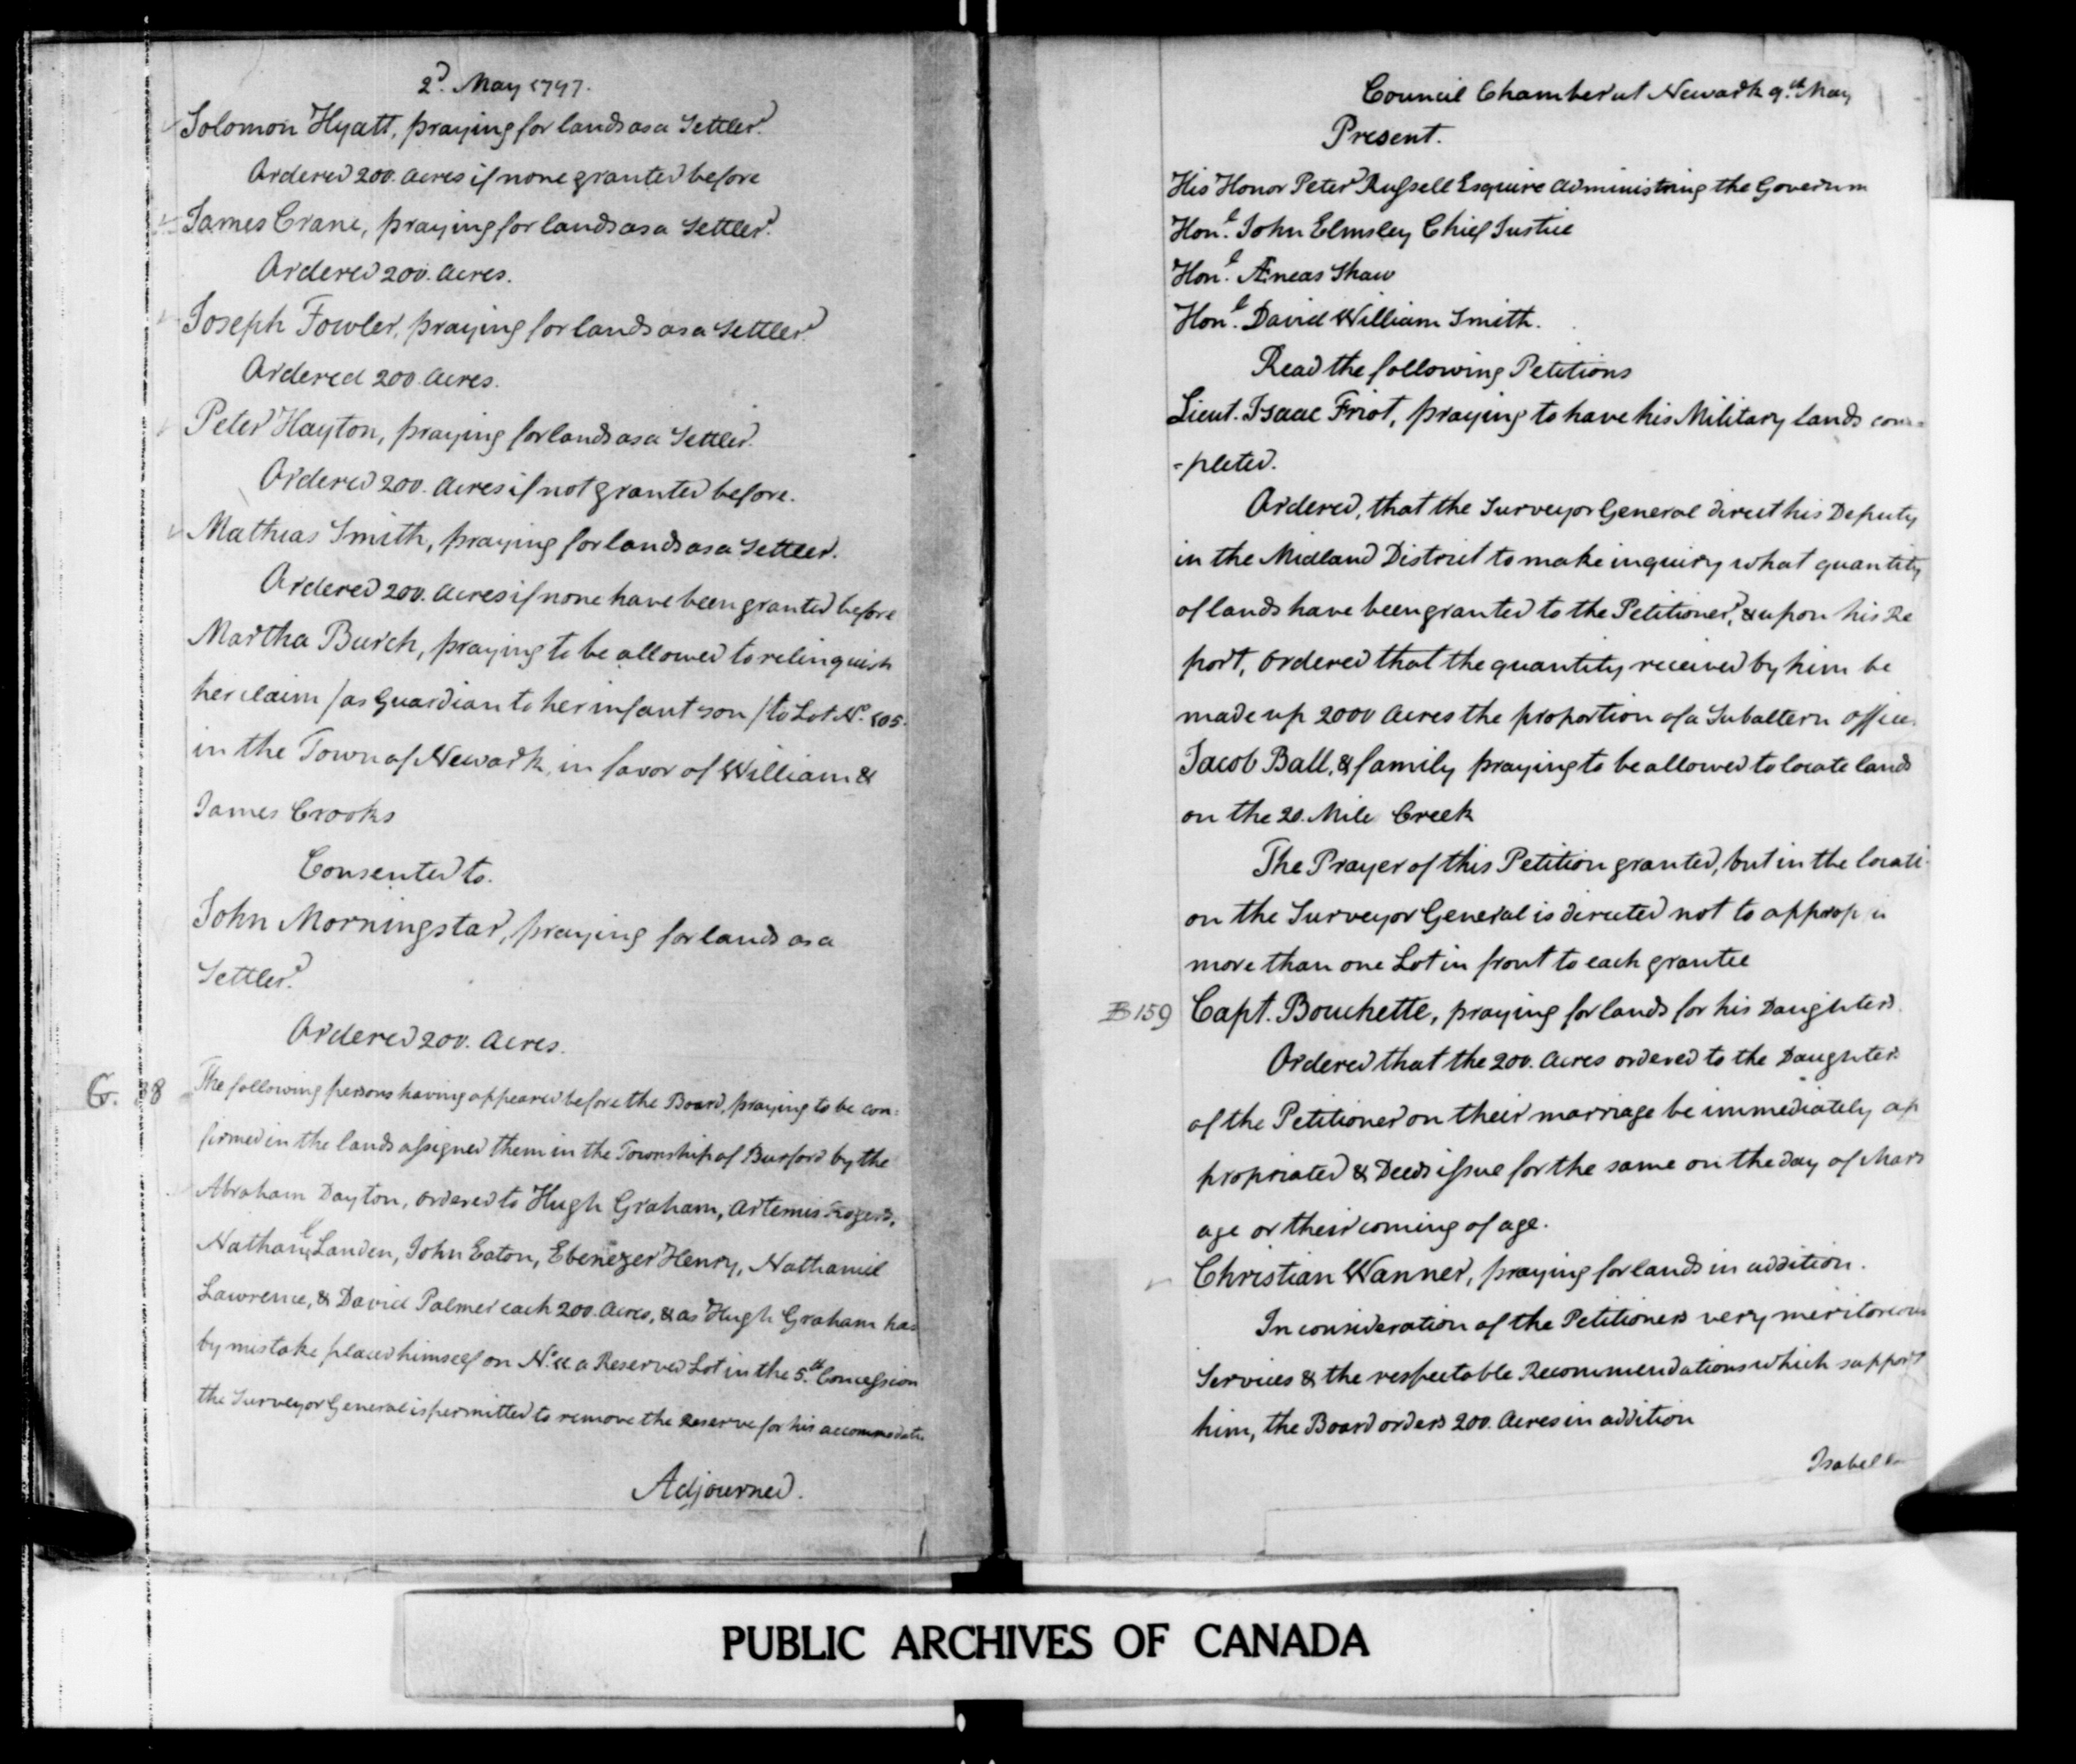 2d. May 1797.
Solomon Hyatt, praying for lands as a Settler.
Ordered 200. Acres if none granted before
James Crane, praying for lands as a Settler.
Ordered 200. Acres.
Joseph Fowler, praying for lands as a Settler
Ordered 200. Acres.
Peter Hayton, praying for lands as a Settler.
Ordered 200. Acres if not granted before.
Mathias Smith, praying for lands as a Settler.
Ordered 200. Acres if none have been granted before
Martha Burch, praying to be allowed to relinquish
her claim / as Guardian to her infant son / to Lot No. 105.
in the Town of Newark, in favor of William &
James Crooks
Consented to.
John Morningstar, praying for lands as a
Settler.
Ordered 200. Acres.
G. 38 The following persons having appeared before the Board, praying to be con=
firmed in the lands assigned them in the Township of Burford by the
Abraham Dayton, ordered to Hugh Graham, Artemis Rogers,
Nathanl. Landen, John Eaton, Ebenezer Henry, Nathaniel
Lawrence, & David Palmer each 200. Acres, & as Hugh Graham has
by mistake placed himself on No. 11 a Reserved Lot in the 5th. Concession
the Surveyor General is permitted to remove the Reserve for his accommodatn
Adjourned.
Council Chamber at Newark 9th. May
Present.
His Honor Peter Russell Esquire Administring the Governm
Honl. John Elmsley Chief Justice
Honl. Æneas Shaw
Honl. David William Smith.
Read the following Petitions
Lieut. Isaac Friot, praying to have his Military lands com=
=pleted.
Ordered, that the Surveyor General direct his Deputy
in the Midland District to make inquiry what quantity
of lands have been granted to the Petitioner, & upon his Re
port, ordered that the quantity received by him be
made up 2000 Acres the proportion of a Subaltern officer.
Jacob Ball, & family praying to be allowed to locate lands
on the 20. Mile Creek
The Prayer of this Petition granted, but in the locati
on the Surveyor General is directed not to appropri
more than one Lot in front to each grantee
B 159 Capt. Bouchette, praying for lands for his Daughters.
Ordered that the 200. Acres ordered to the Daughters
of the Petitioner on their marriage be immediately ap
propriated & Deeds issue for the same on the day of Marri
age or their coming of age.
Christian Wanner, praying for lands in addition.
In consideration of the Petitioners very meritorious
Services & the respectable Recommendations which support
him, the Board orders 200. Acres in addition
Isabella
PUBLIC ARCHIVES OF CANADA